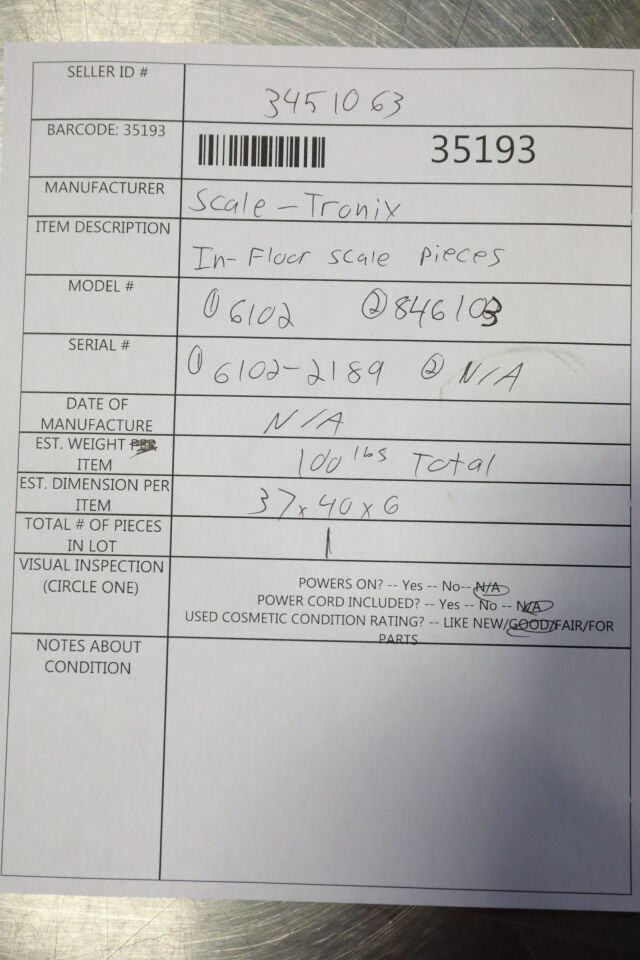 SELLER ID #
3451063
BARCODE: 35193
35193
MANUFACTURER
Scale-Tronix
ITEM DESCRIPTION
In-Floor Scale Pieces
MODEL #
① 6102 ② 846103
SERIAL #
① 6102-2189 ② N/A
DATE OF
MANUFACTURE
N/A
EST. WEIGHT PER
ITEM
100 lbs Total
EST. DIMENSION PER
ITEM
37x40x6
TOTAL # OF PIECES
IN LOT
1
VISUAL INSPECTION
(CIRCLE ONE)
POWERS ON? -- Yes -- No-- N/A
POWER CORD INCLUDED? -- Yes -- No -- N/A
USED COSMETIC CONDITION RATING? -- LIKE NEW/GOOD/FAIR/FOR
PARTS
NOTES ABOUT
CONDITION